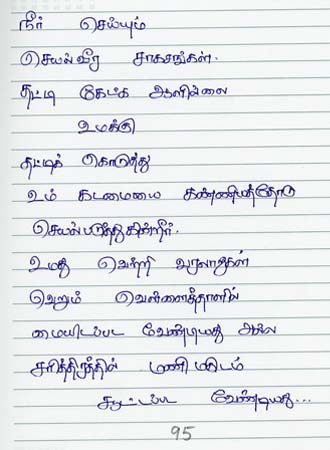 நீர் செய்யும்
செயல்வீர சாகசங்கள்.
தட்டி கேட்க ஆளில்லை
உமக்கு
தட்டிக் கொடுத்து
உம் கடமையை கண்ணியத்தோடு
செயல்படுத்துகின்றீர்.
உமது வெற்றி வரலாறுகள்
வெறும் வெள்ளைத்தாளில்
மையிடப்பட வேண்டியது அல்ல
சரித்திரத்தில் மணி மகுடம்
சூட்டப்பட வேண்டியது...
95